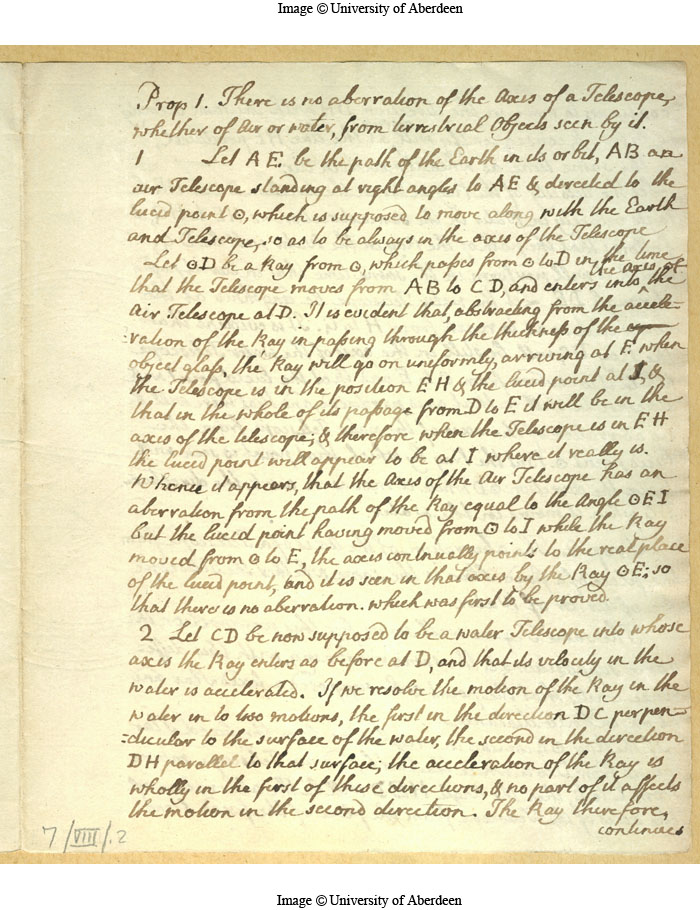 Image © University of Aberdeen
Prop 1. There is no aberration of the Axis of a Telescope,
whether of Air or water, from terrestrial Objects seen by it.
1 Let AE be the path of the Earth in its orbit, AB an
air Telescope standing at right angles to AE &, directed to the
lucid point ⊙, which is supposed to move along with the Earth
and Telescope, so as to be always in the axis of the Telescope
Let ⊙D be a Ray from ⊙, which passes from ⊙ to D in the time
that the Telescope moves from AB to CD, and enters into the axis of the
Air Telescope at D. It is evident that, abstracting from the accele-
:ration of the Ray in passing through the thickness of the
object glass, the Ray will go on uniformly, arriving at E when
the Telescope is in the position EH & the lucid point at I, &
that in the whole of its passage from D to E it will be in the
axis of the telescope; & therefore when the Telescope is in EH
the lucid point will appear to be at I where it really is.
Whence it appears, that the Axis of the Air Telescope has an
aberration from the path of the Ray equal to the Angle ⊙EI
but the lucid point having moved from ⊙ to I while the Ray
moved from ⊙ to E, the axis continually points to the real place
of the lucid point, and it is seen in that axis by the Ray ⊙E; so
that there is no aberration. which was first to be proved.
2 Let CD be now supposed to be a water Telescope into whose
axis the Ray enters as before at D, and that its velocity in the
water is accelerated. If we resolve the motion of the Ray in the
water in to two motions, the first in the direction DC perpen-
:dicular to the surface of the water, the second in the direction
DH parallel to that surface; the acceleration of the Ray is
wholly in the first of these directions, & no part of it affects
the motion in the second direction. The Ray therefore,
continues
7/VIII/.2
Image © University of Aberdeen